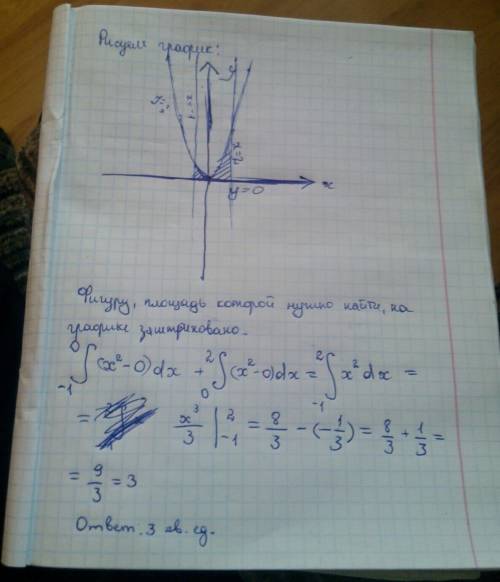 Рисуем график:
y
y=x²
x=-1
x=2
y=0
x
Фигуру, площадь которой нужно найти, на
графике заштриховано.
∫₋₁⁰ (x²-0)dx + ∫₀² (x²-0)dx = ∫₋₁² x² dx =
= x³/3 |₋₁² = 8/3 - (-1/3) = 8/3 + 1/3 =
= 9/3 = 3
Ответ. 3 кв. ед.